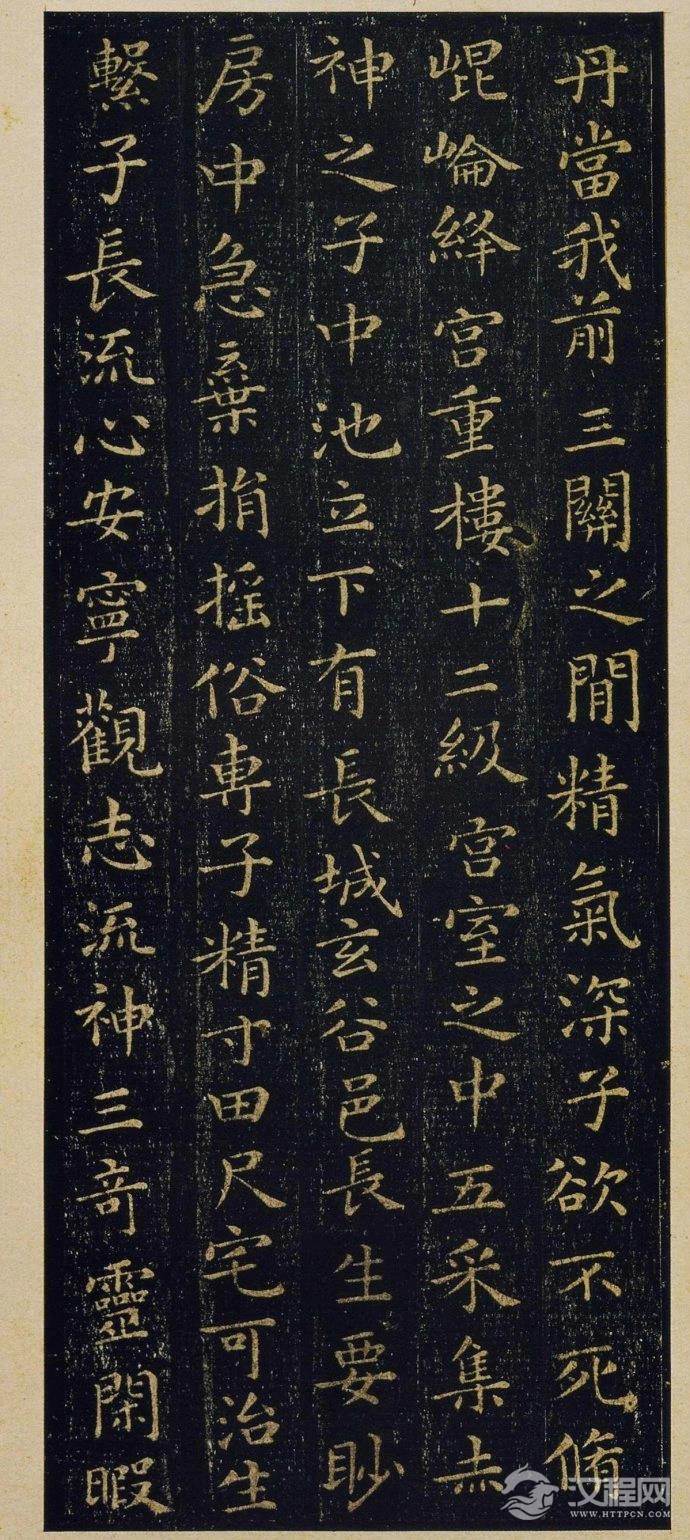 丹當我前三關之間精氣深子欲不死脩
崐崘絳宮重樓十二級宮室之中五采集赤
神之子中池立下有長城玄谷邑長生要眇
房中急棄捐搖俗専子精寸田尺宅可治生
繫子長流心安寧觀志流神三奇靈閑暇
汉程网
WWW.HTTPCN.COM